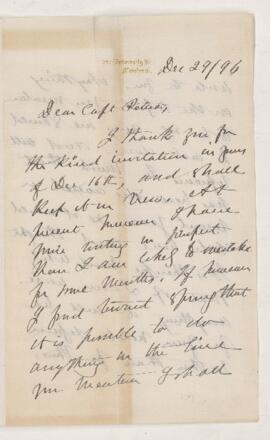 University St
Montreal
Dec 29/96
Dear Capt
I thank you for
the kind invitation in yours
of Dec 16th, and shall
keep it in view. At
present however I have
more writing in prospect
than I am likely to overtake
for some months. If however
I find toward spring that
it is possible to do
anything in the line
you mention I shall